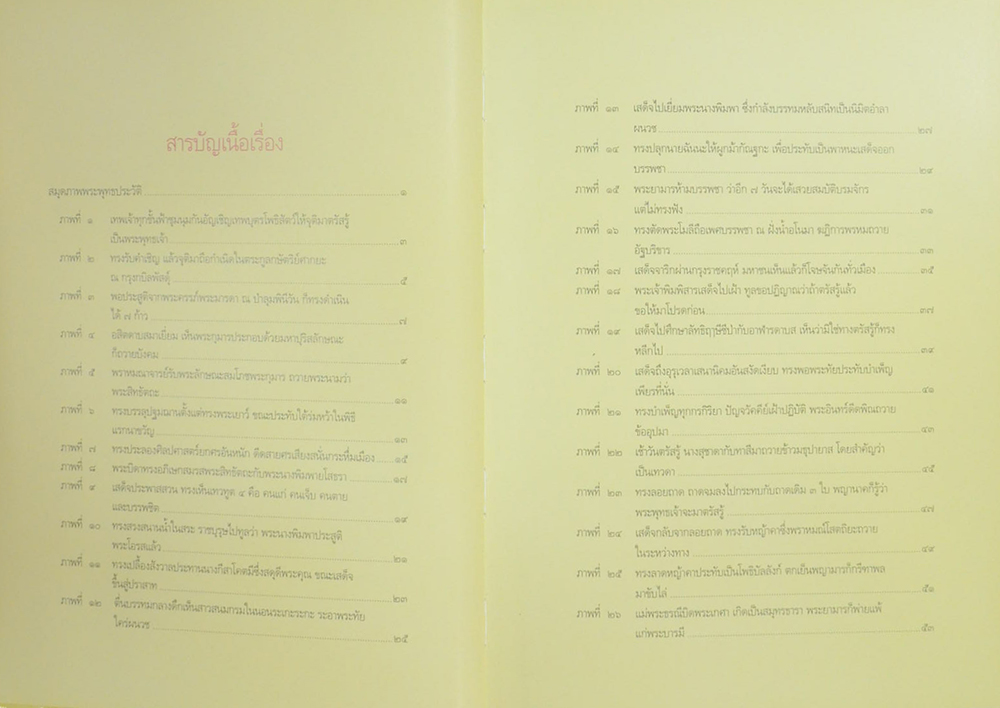 สารบัญเนื้อเรื่อง
สมุดภาพพระพุทธประวัติ ๑
ภาพที่ ๑ เทพเจ้าทุกชั้นฟ้าชุมนุมกันอัญเชิญเทพบุตรโพธิสัตว์ให้จุติมาตรัสรู้
เป็นพระพุทธเจ้า ๓
ภาพที่ ๒ ทรงรับคำเชิญ แล้วจุติมาถือกำเนิดในตระกูลกษัตริย์ศากยะ
ณ กรุงกบิลพัสดุ์ ๕
ภาพที่ ๓ พอประสูติจากพระครรภ์พระมารดา ณ ป่าลุมพินีวัน ก็ทรงดำเนิน
ได้ ๗ ก้าว ๗
ภาพที่ ๔ อสิตดาบสมาเยี่ยม เห็นพระกุมารประกอบด้วยมหาปุริสลักษณะ
ก็ถวายบังคม ๙
ภาพที่ ๕ พราหมณาจารย์รับพระลักษณะสมโภชพระกุมาร ถวายพระนามว่า
พระสิทธัตถะ ๑๑
ภาพที่ ๖ ทรงบรรลุปฐมฌานตั้งแต่ทรงพระเยาว์ ขณะประทับใต้ร่มหว้าในพิธี
แรกนาขวัญ ๑๓
ภาพที่ ๗ ทรงประลองศิลปศาสตร์ยกศรอันหนัก ดีดสายศรเสียงสนั่นกระหึ่มเมือง ๑๕
ภาพที่ ๘ พระบิดาทรงอภิเษกสมรสพระสิทธัตถะกับพระนางพิมพายโสธรา ๑๗
ภาพที่ ๙ เสด็จประพาสสวน ทรงเห็นเทวทูต ๔ คือ คนแก่ คนเจ็บ คนตาย
และบรรพชิต ๑๙
ภาพที่ ๑๐ ทรงสรงสนานน้ำในสระ ราชบุรุษไปทูลว่า พระนางพิมพาประสูติ
พระโอรสแล้ว ๒๑
ภาพที่ ๑๑ ทรงเปลื้องสังวาลประทานนางกีสาโคตมีซึ่งสดุดีพระคุณ ขณะเสด็จ
ขึ้นสู่ปราสาท ๒๓
ภาพที่ ๑๒ ตื่นบรรทมกลางดึกเห็นสาวสนมกรมในนอนระเกะระกะ ระอาพระทัย
ใคร่ผนวช ๒๕
ภาพที่ ๑๓ เสด็จไปเยี่ยมพระนางพิมพา ซึ่งกำลังบรรทมหลับสนิทเป็นนิมิตอำลา
ผนวช ๒๗
ภาพที่ ๑๔ ทรงปลุกนายฉันนะให้ผูกม้ากัณฐกะ เพื่อประทับเป็นพาหนะเสด็จออก
บรรพชา ๒๙
ภาพที่ ๑๕ พระยามารห้ามบรรพชา ว่าอีก ๗ วันจะได้เสวยสมบัติบรมจักร
แต่ไม่ทรงฟัง ๓๑
ภาพที่ ๑๖ ทรงตัดพระโมลีถือเพศบรรพชา ณ ฝั่งน้ำอโนมา ฆฏิการพรหมถวาย
อัฐบริขาร ๓๓
ภาพที่ ๑๗ เสด็จจาริกผ่านกรุงราชคฤห์ มหาชนเห็นแล้วก็โจษจันกันทั่วเมือง ๓๕
ภาพที่ ๑๘ พระเจ้าพิมพิสารเสด็จไปเฝ้า ทูลขอปฏิญาณว่าถ้าตรัสรู้แล้ว
ขอให้มาโปรดก่อน ๓๗
ภาพที่ ๑๙ เสด็จไปศึกษาลัทธิฤๅษีชีป่ากับอาฬารดาบส เห็นว่ามิใช่ทางตรัสรู้ก็ทรง
หลีกไป ๓๙
ภาพที่ ๒๐ เสด็จถึงอุรุเวลาเสนานิคมอันสงัดเงียบ ทรงพอพระทัยประทับบำเพ็ญ
เพียรที่นั่น ๔๑
ภาพที่ ๒๑ ทรงบำเพ็ญทุกกรกิริยา ปัญจวัคคีย์เฝ้าปฏิบัติ พระอินทร์ดีดพิณถวาย
ข้ออุปมา ๔๓
ภาพที่ ๒๒ เช้าวันตรัสรู้ นางสุชาดากับทาสีมาถวายข้าวมธุปายาส โดยสำคัญว่า
เป็นเทวดา ๔๕
ภาพที่ ๒๓ ทรงลอยถาด ถาดจมลงไปกระทบกับถาดเดิม ๓ ใบ พญานาคก็รู้ว่า
พระพุทธเจ้าจะมาตรัสรู้ ๔๗
ภาพที่ ๒๔ เสด็จกลับจากลอยถาด ทรงรับหญ้าคาซึ่งพราหมณ์โสตถิยะถวาย
ในระหว่างทาง ๔๙
ภาพที่ ๒๕ ทรงลาดหญ้าคาประทับเป็นโพธิบัลลังก์ ตกเย็นพญามารก็กรีฑาพล
มาขับไล่ ๕๑
ภาพที่ ๒๖ แม่พระธรณีบิดพระเกศา เกิดเป็นสมุทรธารา พระยามารก็พ่ายแพ้
แก่พระบารมี ๕๓